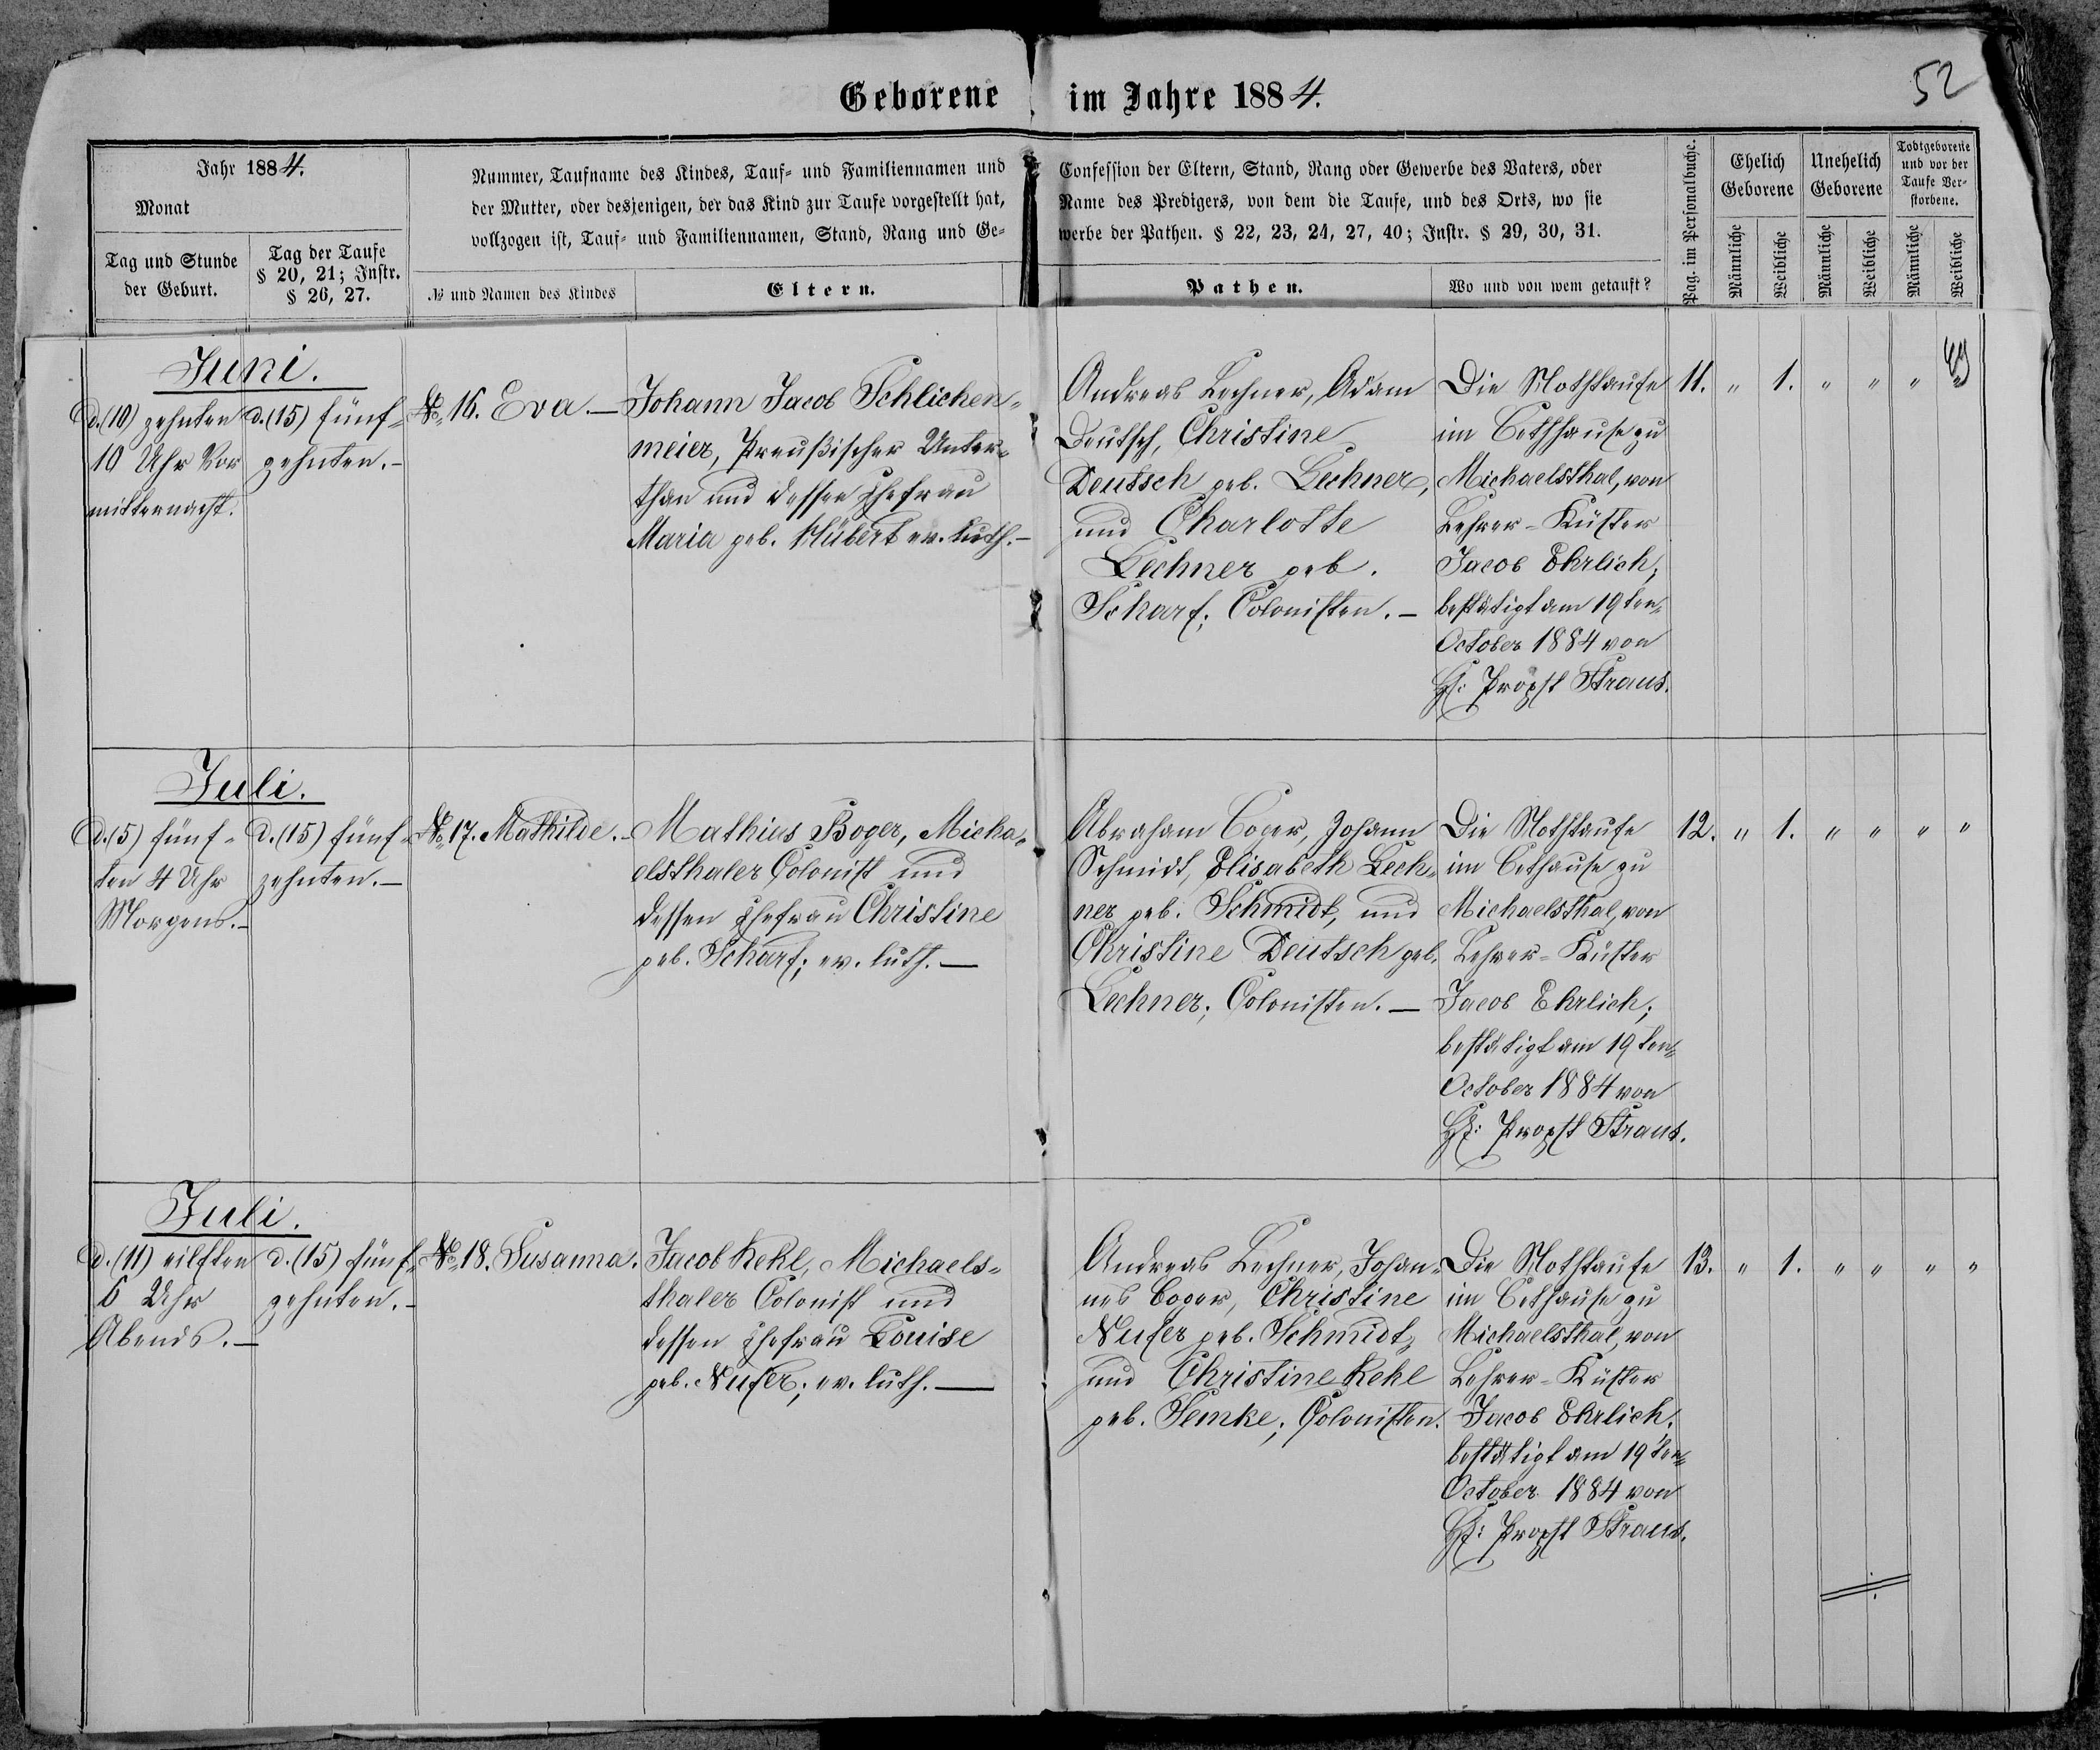 52
Geborene im Jahre 1884.
Jahr 1884.
Monat
Tag und Stunde
der Geburt.
Tag der Taufe
§ 20, 21; Instr.
§ 26, 27.
Nummer, Taufname des Kindes, Tauf- und Familiennamen und
der Mutter, oder desjenigen, der das Kind zur Taufe vorgestellt hat,
vollzogen ist, Tauf- und Familiennamen, Stand, Rang und Ge-
№ und Namen des Kindes
Eltern.
Confession der Eltern, Stand, Rang oder Gewerbe des Vaters, oder
Name des Predigers, von dem die Taufe, und des Orts, wo sie
werbe der Pathen. § 22, 23, 24, 27, 40; Instr. § 29, 30, 31.
Pathen.
Wo und von wem getauft?
Pag. im Personalbuche.
Ehelich
Geborene
Unehelich
Geborene
Todtgeborene
und vor der
Taufe Ver-
storbene.
Männliche
Weibliche
Männliche
Weibliche
Männliche
Weibliche
Juni.
d. (10) zehnten
10 Uhr Vor
mitternacht.
d. (15) fünf-
zehnten.-
№ 16. Eva.-
Johann Jacob Schlichen-
meier, Preußischer Unter-
than und dessen Ehefrau
Maria geb. Klübert ev. luth.-
Andreas Lechner, Adam
Deutsch, Christine
Deutsch geb. Lechner,
und Charlotte
Lechner geb.
Scharf; Colonisten.-
Die Nothtaufe
im Bethhause zu
Michaelsthal, von
Lehrer-Küster
Jacob Ehrlich;
bestätigt am 19ten
October 1884 von
H: Propst Straus.
11. " 1. " " "
Juli.
d. (5) fünf-
ten 4 Uhr
Morgens.-
d. (15) fünf-
zehnten.-
№ 17. Mathilde.-
Mathias Boger, Micha-
elsthaler Colonist und
dessen Ehefrau Christine
geb. Scharf; ev. luth.-
Abraham Boger, Johann
Schmidt, Elisabeth Lech-
ner geb. Schmidt, und
Christine Deutsch geb.
Lechner; Colonisten.-
Die Nothtaufe
im Bethause zu
Michaelsthal, von
Lehrer-Küster
Jacob Ehrlich;
bestätigt am 19ten
October 1884 von
H: Propst Straus.
12. " 1. " " " "
Juli.
d. (11) eilften
6 Uhr
Abends.-
d. (15) fünf-
zehnten.-
№ 18. Susanna.
Jacob Kehl, Michaels-
thaler Colonist und
dessen Ehefrau Louise
geb. Nufer; ev. luth.-
Andreas Lechner, Johan-
nes Boger, Christine
Nufer geb. Schmidt,
und Christine Kehl
geb. Semke; Colonisten.
Die Nothtaufe
im Bethause zu
Michaelsthal, von
Lehrer-Küster
Jacob Ehrlich;
bestätigt am 19ten
October 1884 von
H: Propst Straus.
13. " 1. " " " "